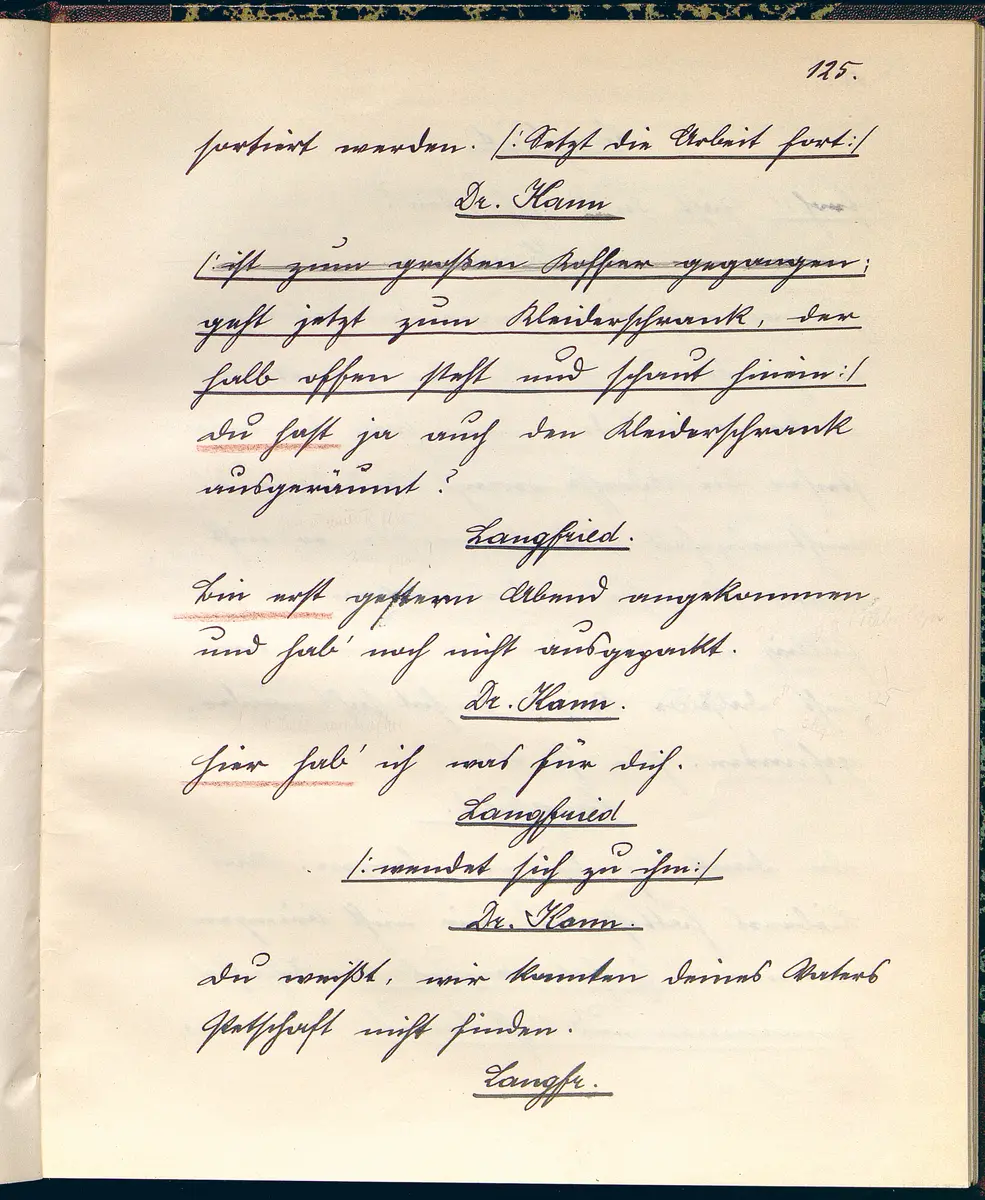 125.
sortiert werden. /: Setzt die Arbeit fort :/
Dr. Hann
/: ist zum großen Koffer gegangen;
geht jetzt zum Kleiderschrank, der
halb offen steht und schaut hinein :/
Du hast ja auch den Kleiderschrank
ausgeräumt?
Langfried.
Bin erst gestern Abend angekommen
und hab' noch nicht ausgepackt.
Dr. Hann.
Hier hab' ich was für dich.
Langfried
/: wendet sich zu ihm :/
Dr. Hann.
Du weißt, wir konnten deines Vaters
Petschaft nicht finden.
Langfr.